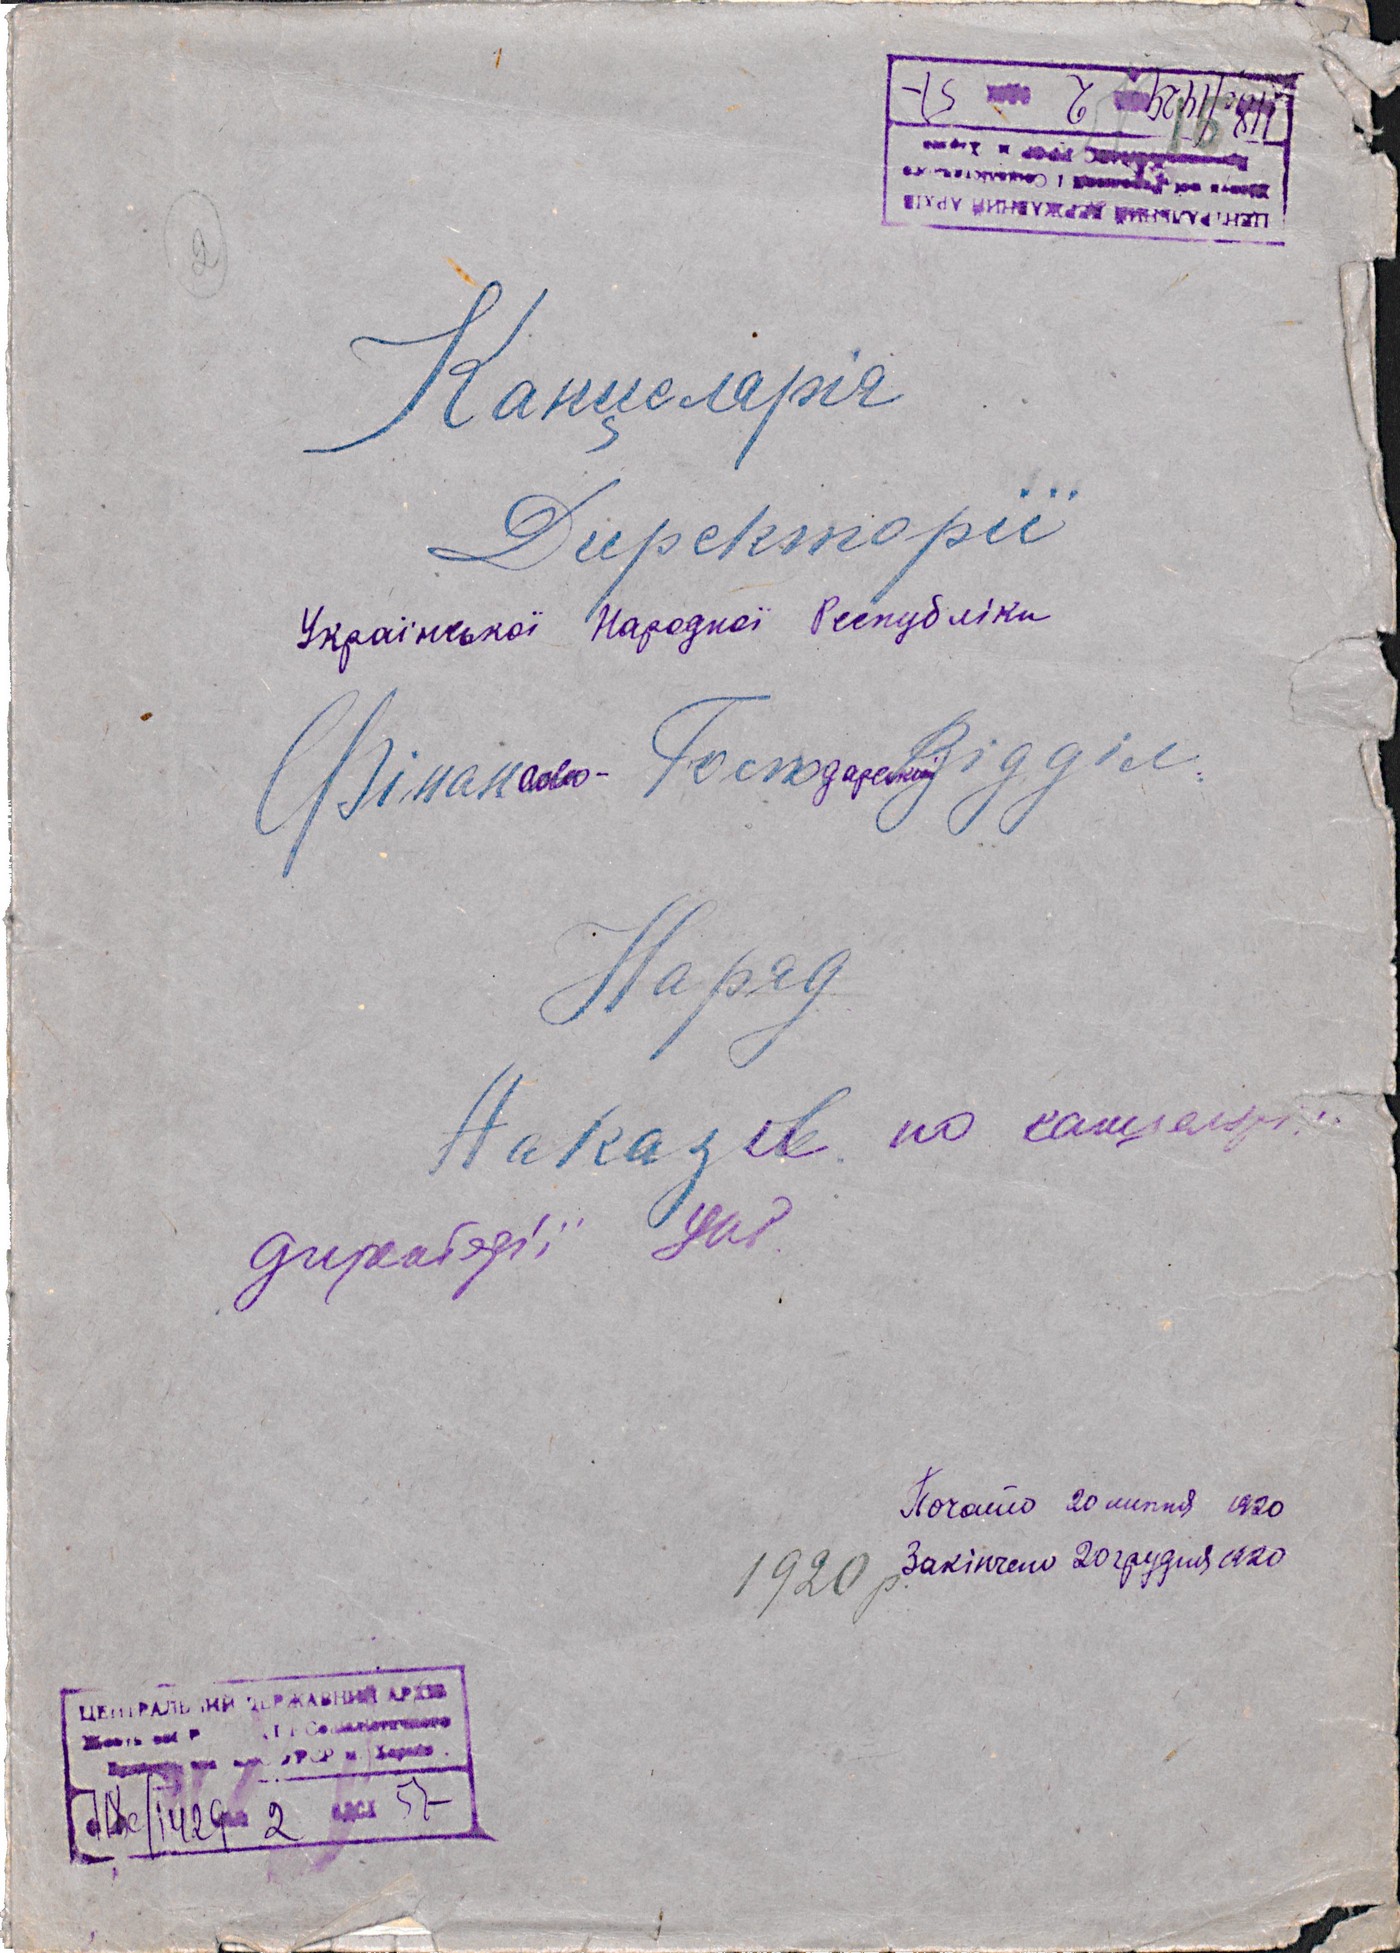 2
Канцелярія
Директорії
Української Народної Республіки
Фінансово- Господарський Відділ.
Наряд
Наказів по канцелярії
директорії УНР.
Почато 20 липня 1920
Закінчено 20 грудня 1920
1920 р.
ЦЕНТРАЛЬНИЙ ДЕРЖАВНИЙ АРХІВ
Жовтневої Р і Соціалістичного
УРСР м. Харків
/1429 2 57
ЦЕНТРАЛЬНИЙ ДЕРЖАВНИЙ АРХІВ
Жовтневої і Соціалістичного
УРСР м. Харків
/1429 2 57